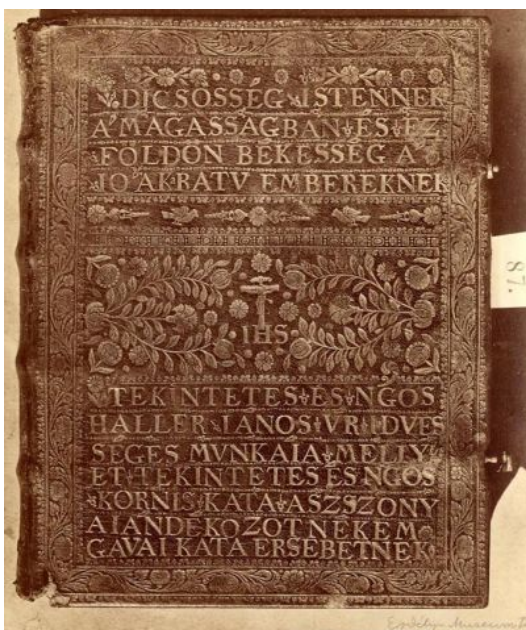 DICSOSSÉG ISTENNEK
A' MAGASSAGBAN ÉS EZ
FÖLDÖN BÉKESSÉG A
IO AKRATV EMBEREKNEK
IHS
TEKINTETES ÉS NGOS
HALLER IANOS VR IDVES
SÉGES MVNKAIA MELLY
ET TEKINTETES ÉS NGOS
KORNIS KATA ASZSZONY
AIANDEKOZOT NEKEM
GAVAI KATA ERSEBETNEK
87.